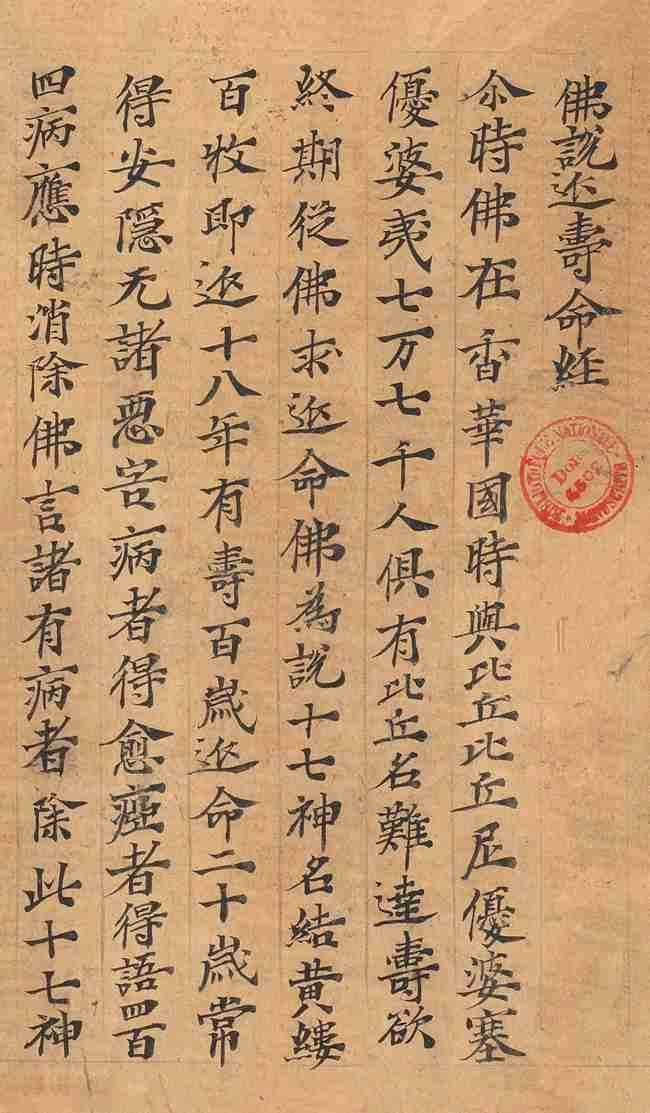 佛說延壽命経
尒時佛在香華國時與比丘比丘尼優婆塞
優婆夷七万七千人俱有比丘名難達壽欲
終期従佛求延命佛為說十七神名結黄縷
百牧即延十八年有壽百歲延命二十歲常
得安隱无諸惡害病者得愈瘂者得語四百
四病應時消除佛言諸有病者除此十七神
BIBLIOTHEQUE NATIONALE MANUSCRITS